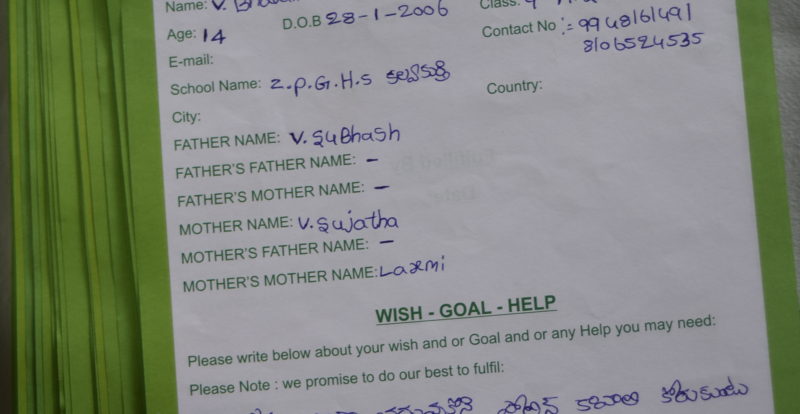 Name: V.
Age: 14 D.O.B 28-1-2006 Class:
Contact No := 9948161491
8106524535
E-mail:
School Name: Z.P.G.H.S కల్వకుర్తి
Country:
City:
FATHER NAME: V. SuBhash
FATHER'S FATHER NAME: –
FATHER'S MOTHER NAME: –
MOTHER NAME: V. Sujatha
MOTHER'S FATHER NAME: –
MOTHER'S MOTHER NAME: Laxmi
WISH - GOAL - HELP
Please write below about your wish and or Goal and or any Help you may need:
Please Note : we promise to do our best to fulfil:
పోలీస్ కావాలి కోరుకుంటు